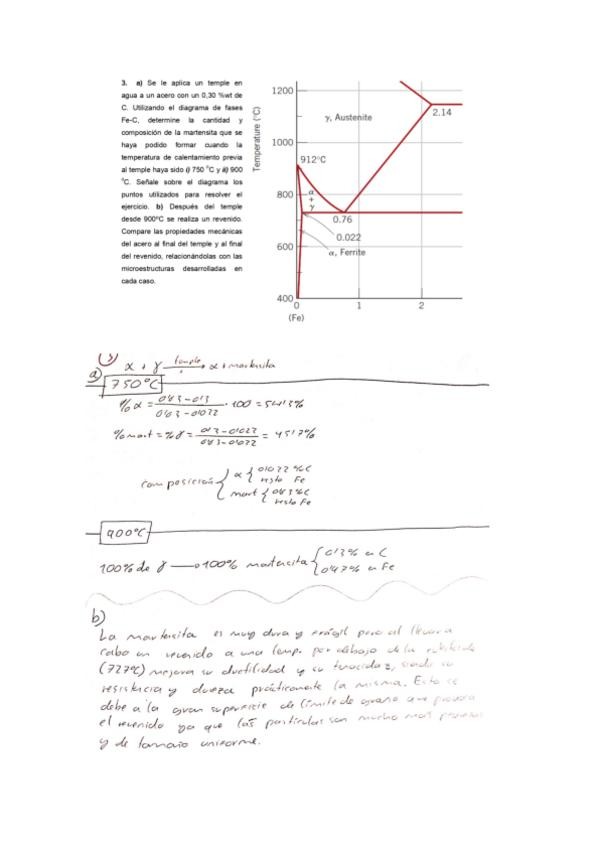 3. a) Se le aplica un temple en
agua a un acero con un 0,30 %wt de
C. Utilizando el diagrama de fases
Fe-C, determine la cantidad y
composición de la martensita que se
haya podido formar cuando la
temperatura de calentamiento previa
al temple haya sido i) 750 °C y ii) 900
°C. Señale sobre el diagrama los
puntos utilizados para resolver el
ejercicio. b) Después del temple
desde 900°C se realiza un revenido.
Compare las propiedades mecánicas
del acero al final del temple y al final
del revenido, relacionándolas con las
microestructuras desarrolladas en
cada caso.
Temperature (°C)
1200
1000
800
600
400
γ, Austenite
2.14
912°C
α
+
γ
0.76
0.022
α, Ferrite
0
1
2
(Fe)
3
α + γ temple → α + martensita
a)
750°C
%α = · 100 =
%mart = %γ = =
composición { α { 0'022 %C
resto Fe
mart { %C
resto Fe
900°C
100% de γ → 100% martensita { 0'3% en C
% en Fe
b)
La martensita es muy dura y frágil pero al llevar a
cabo un revenido a una temp. por debajo de la
(727°C) mejora su ductilidad y su tenacidad, siendo su
resistencia y dureza prácticamente la misma. Esto se
debe a la gran superficie de límite de grano que provoca
el revenido ya que las partículas son mucho más pequeñas
y de tamaño uniforme.